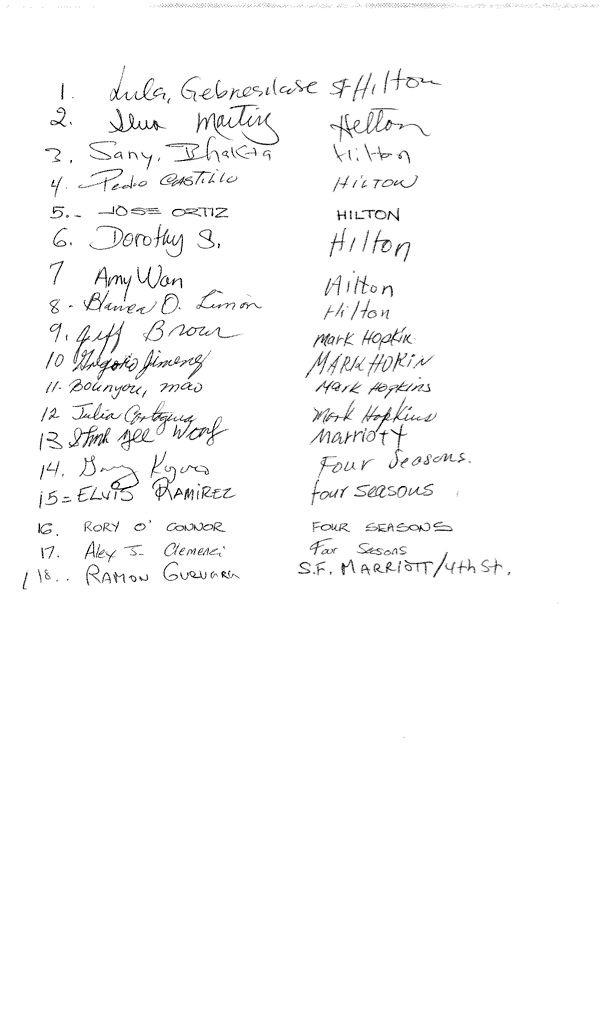 1. Lula, Gebresilase SF Hilton
2. Martinz Hellon
3, Sany, Bhakta Hilton
4. Pedro CASTILLO HILTON
5.- JOSE ORTIZ HILTON
6. Dorothy S. Hilton
7 Amy Wan Hilton
8 - Blanca O. Limon Hilton
9. Jeff Brown Mark Hopkin
10 Gregorio Jimenez MARK HOPKIN
11. Bounyou, mao Mark Hopkins
12 Julia Mark Hopkins
13 yee Wong Marriott
14. Four Seasons.
15= ELVIS RAMIREZ four seasons
16. RORY O' CONNOR FOUR SEASONS
17. Alex J. Four Sesons
18.. RAMON GUEVARA S.F. MARRIOTT/4th St.